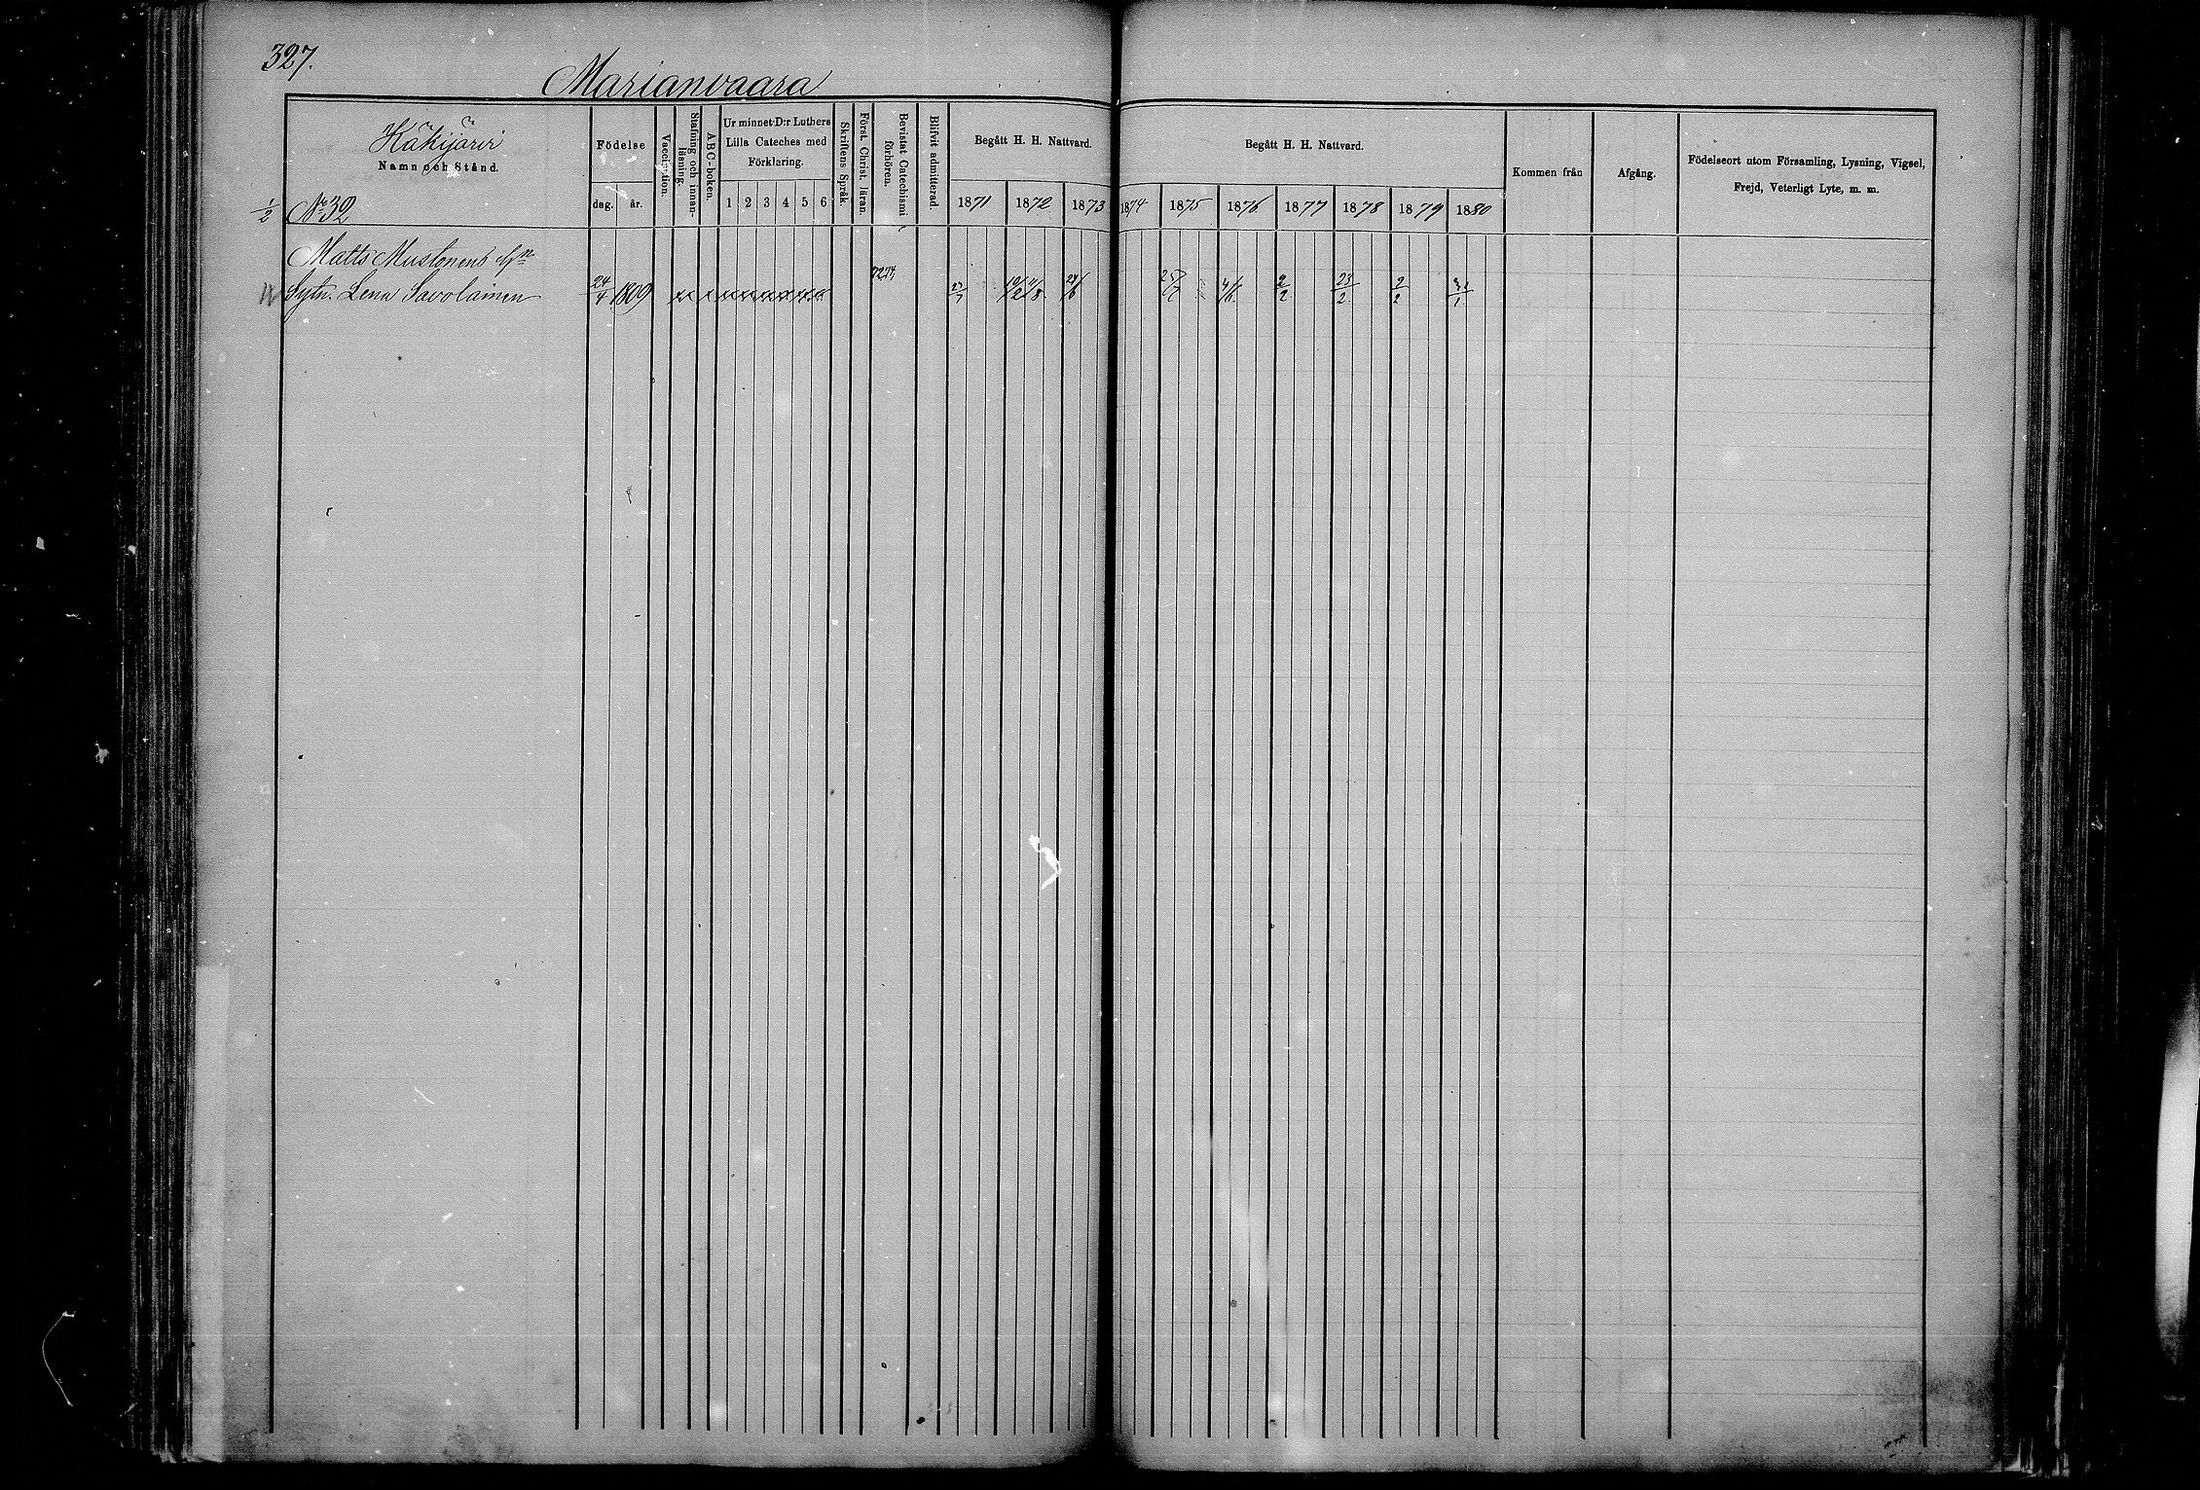 327.
Marianvaara
Häkijärvi
Namn och Stånd.
Födelse
dag. år.
Vaccination.
Stafning och innan-läsning.
ABC-boken.
Ur minnet D:r Luthers
Lilla Cateches med
Förklaring.
1 2 3 4 5 6
Skriftens Språk.
Först. Christ. läran.
Bevistat Catechismi förhören.
Blifvit admitterad.
Begått H. H. Nattvard.
1871 1872 1873
Begått H. H. Nattvard.
1874 1875 1876 1877 1878 1879 1880
Kommen från
Afgång.
Födelseort utom Församling, Lysning, Vigsel,
Frejd, Veterligt Lyte, m. m.
1/2 No 32
Matts Mustonens
Sytn. Lena Savolainen 24/4 1809 72 74 19/2 24/6 2/2 23/2 2/2